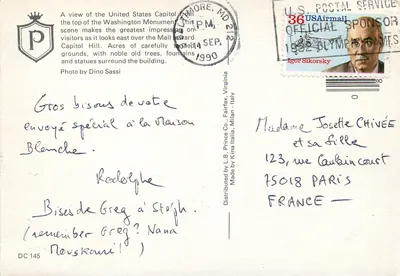 A view of the United States Capitol
the top of the Washington Monument
scene makes the greatest impression
visitors as it looks east over the Mall
Capitol Hill. Acres of carefully
grounds, with noble old trees, fountains
and statues surround the building.
Photo by Dino Sassi
P
BALTIMORE, MD 212
PM
14 SEP.
1990
U.S. POSTAL SERVICE
OFFICIAL SPONSOR
OLYMPIC GAMES
36 USAirmail
Igor Sikorsky
Gros bisous de votre
envoyé spécial à la Maison
Blanche.
Rodolphe
Bises de Greg à Steph.
(remember Greg? Nana
Mouskouri!)
Distributed by L.B. Prince Co. Fairfax, Virginia
Made by Kina Italia, Milan - Italy
Madame Josette CHIVÉE
et sa fille
123, rue Caulaincourt
75018 PARIS
FRANCE
DC 145